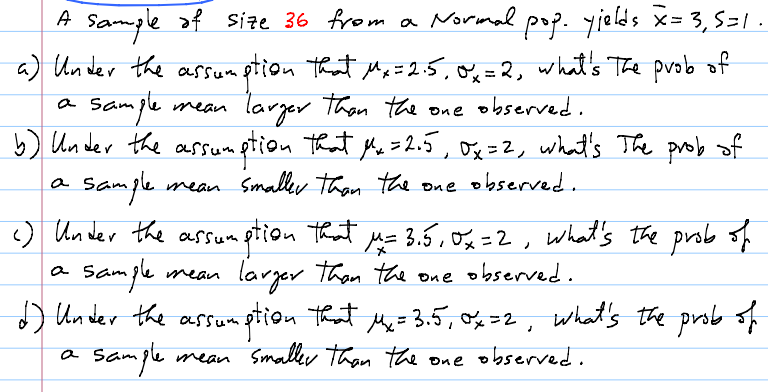 A sample of size 36 from a Normal pop. yields x̄ = 3, S=1.
a) Under the assumption that μₓ=2.5, σₓ=2, what's The prob of
a sample mean larger than the one observed.
b) Under the assumption that μₓ=2.5, σₓ=2, what's The prob of
a sample mean smaller than the one observed.
c) Under the assumption that μₓ=3.5, σₓ=2, what's the prob of
a sample mean larger than the one observed.
d) Under the assumption that μₓ=3.5, σₓ=2, what's the prob of
a sample mean smaller than the one observed.